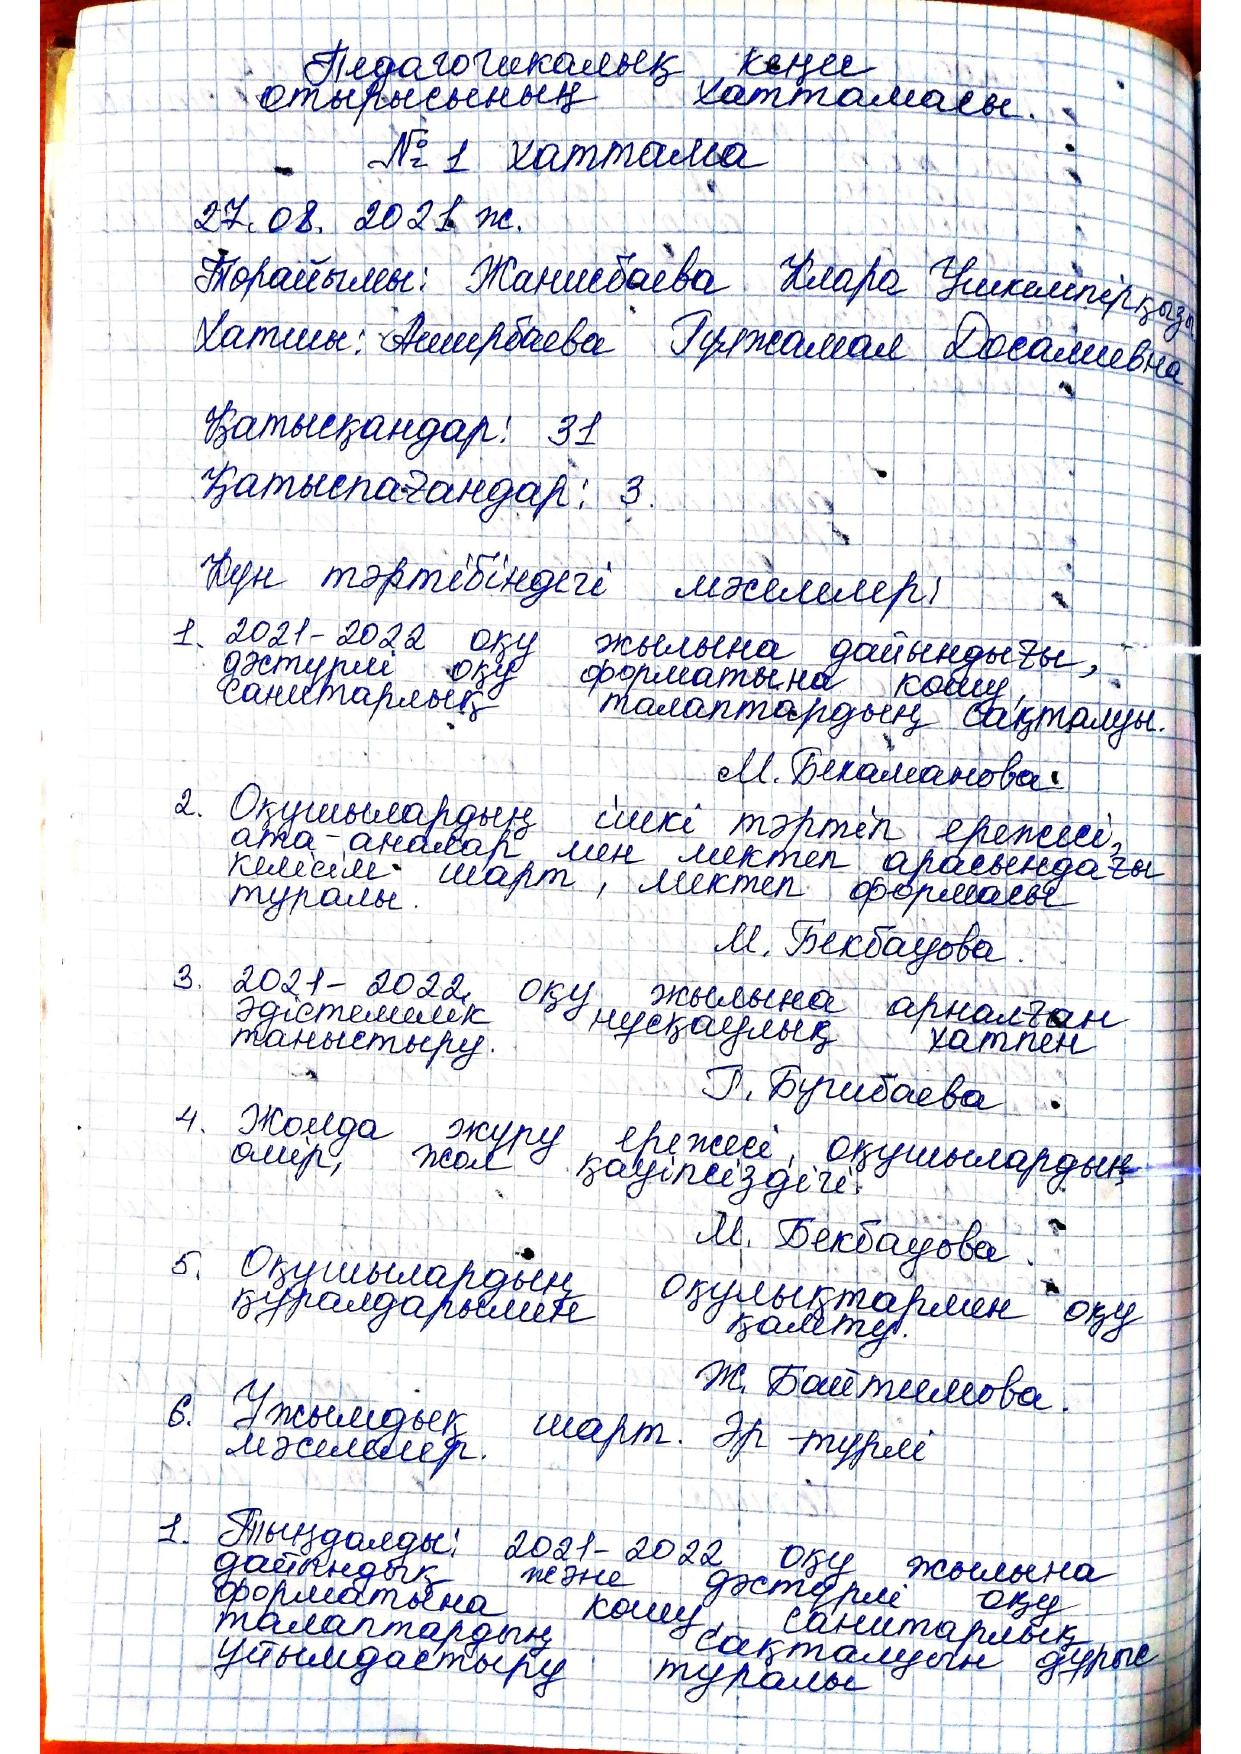 Педагогикалық кеңес
отырысының хаттамасы.
№ 1 хаттама
27.08. 2021 ж.
Төрайымы: Жанисбаева Клара Үшкемпірқызы
Хатшы: Аширбаева Гүлжамал Досалиевна
Қатысқандар: 31
Қатыспағандар: 3.
Күн тәртібіндегі мәселелер:
1. 2021-2022 оқу жылына дайындығы,
дәстүрлі оқу форматына көшу,
санитарлық талаптардың сақталуы.
М. Бекаманова.
2. Оқушылардың ішкі тәртіп ережесі,
ата-аналар мен мектеп арасындағы
келісім шарт, мектеп формасы
туралы.
М. Бекбауова.
3. 2021-2022 оқу жылына арналған
әдістемелік нұсқаулық хатпен
таныстыру.
Г. Бүшбаева
4. Жолда жүру ережесі, оқушылардың
өмір, жол қауіпсіздігі.
М. Бекбауова.
5. Оқушылардың оқулықтармен оқу
құралдарымен қамту.
Ж. Байтимова.
6. Ұжымдық шарт. Әр-түрлі
мәселелер.
1. Тыңдалды: 2021-2022 оқу жылына
дайындық және дәстүрлі оқу
форматына көшу, санитарлық
талаптардың сақталуын дұрыс
ұйымдастыру туралы